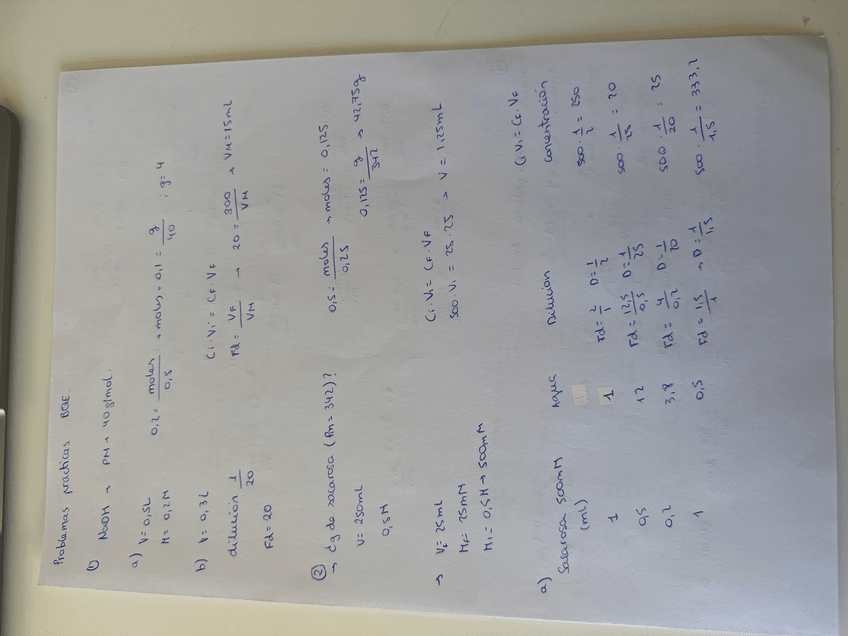 Problemas prácticas BQE.
① NaOH → PM → 40 g/mol.
a) V = 0,5L
M = 0,2M
0,2 = moles / 0,5 → moles = 0,1 = g / 40 ; g = 4
b) V = 0,3L
dilución 1/20
Fd = 20
Ci·Vi = CF·VF
Fd = VF / VM → 20 = 300 / VM → VM = 15mL
② → ¿g de sacarosa (Pm = 342)?
V = 250mL
0,5M
0,5 = moles / 0,25 → moles = 0,125
0,125 = g / 342 → 42,75g
→ VF = 25mL
MF = 25mM
Mi = 0,5M → 500mM
Ci·Vi = CF·VF
500·Vi = 25·25 → V = 1,25mL
Ci·Vi = CF·VF
a) Sacarosa 500mM (ml) Agua Dilución Concentración
1 1 Fd = 2/1 D = 1/2 500 · 1/2 = 250
0,5 12 Fd = 12,5/0,5 D = 1/25 500 · 1/25 = 20
0,2 3,8 Fd = 4/0,2 D = 1/20 500 · 1/20 = 25
1 0,5 Fd = 1,5/1 → D = 1/1,5 500 · 1/1,5 = 333,2